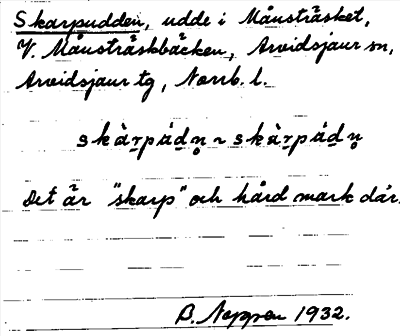 Skarpudden, udde i Månsträsket,
V. Månsträskbäcken, Arvidsjaur sn,
Arvidsjaur tg, Norrb. l.
skàr̲pád̲n̥ ~ skàr̲pád̲n̥
Det är "skarp" och hård mark där.
B. 1932.